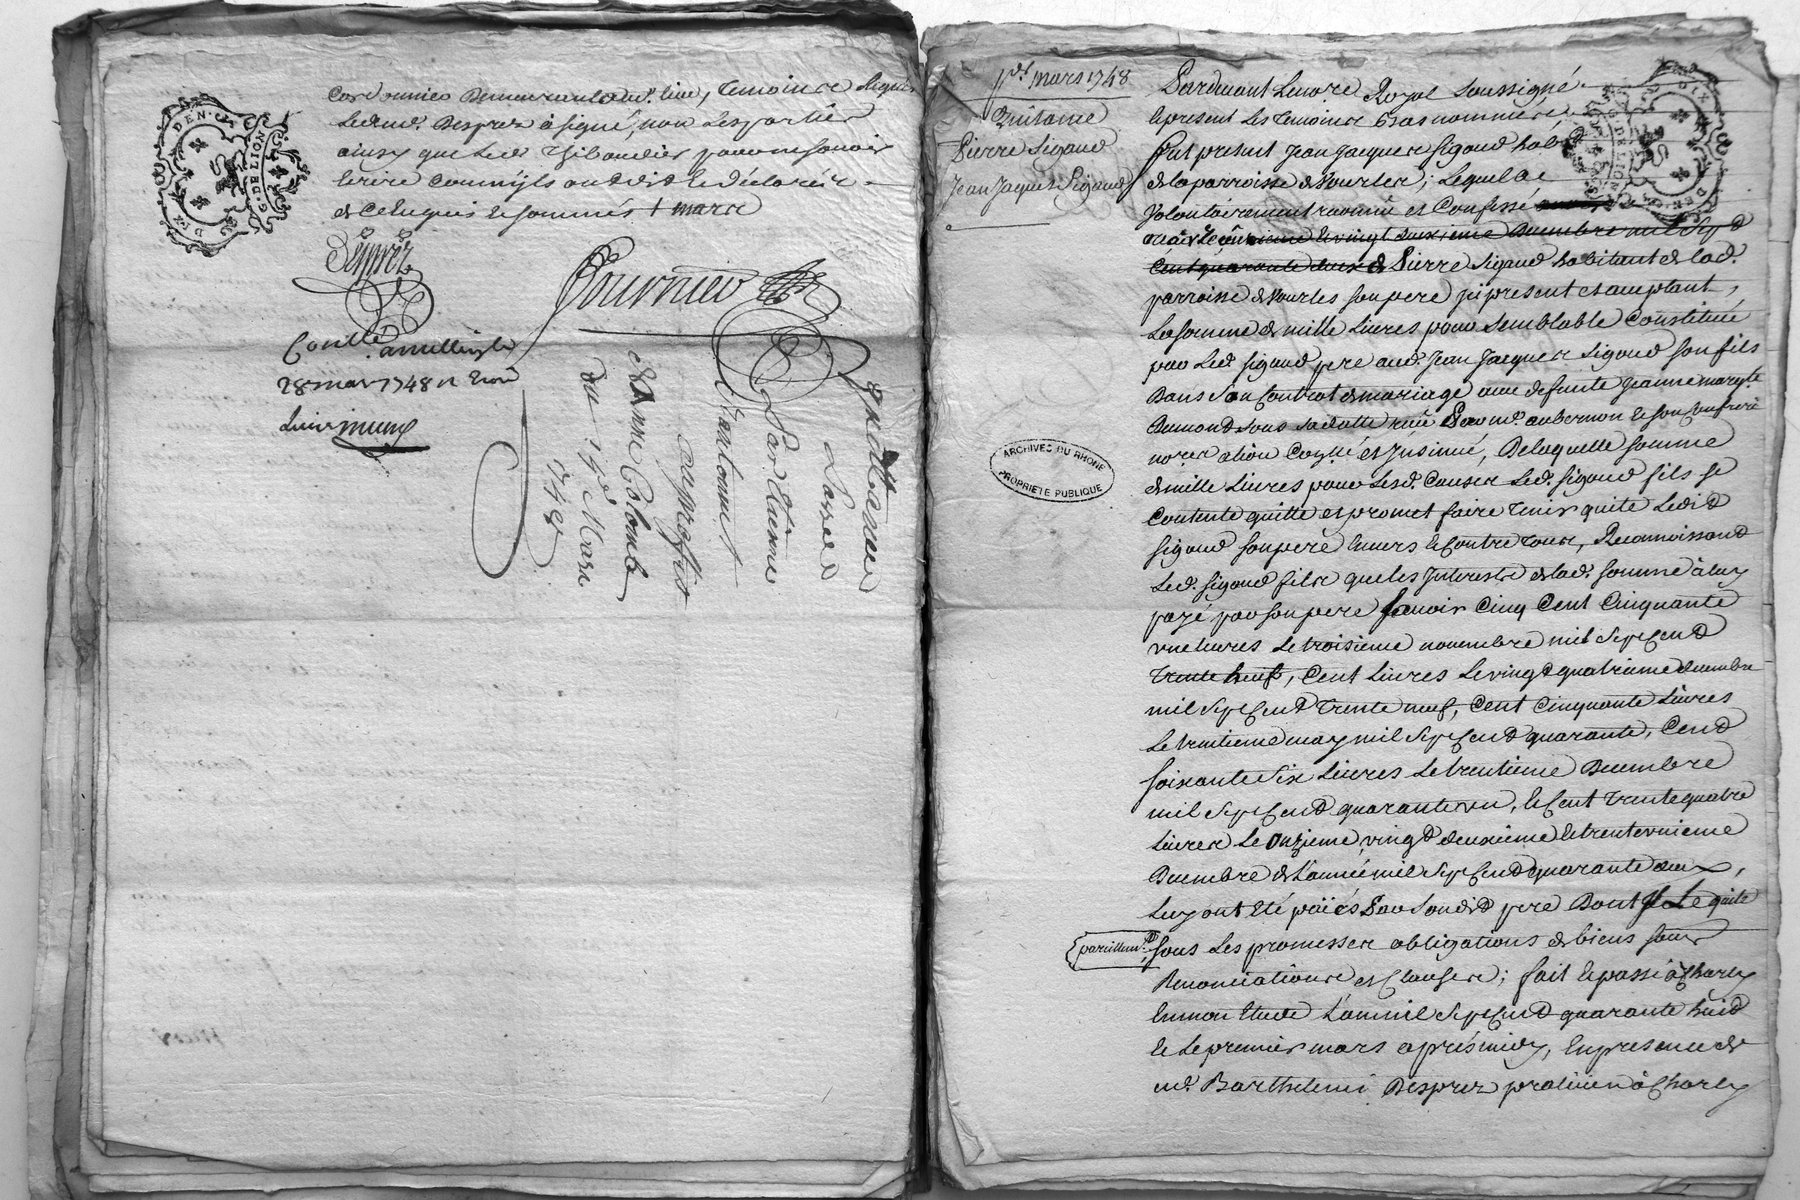 DIX DEN.ERS
G. DE LION
Cordonnier demeurants aud. lieu, temoins signés
led. md. Desprez a signé, non les parties
ainsy que led. Thibaudier pour ne sçavoir
ecrire comm'ils ont dit et déclaré
de ce enquis et sommés
Desprez
Fournier
Conllé a millery le
28 mars 1748 n
douze
Quittance
Passée
Par Etienne
Vantomes
au proffit
de Anne Colomb
du 19e Mars
1748
1er mars 1748
Quittance
Pierre Sigaud
Jean Jaques Sigaud
ARCHIVES DU RHONE
PROPRIETE PUBLIQUE
DIX DEN.ERS
G. DE LION
Pardevant Le no.re Royal Soussigné
et present les temoins bas nommés
fut present Jean Jacques Sigaud hab
de la parroisse de Vourles; Lequel a
volontairement reconnu et Confessé
avoir receu vingt deuxieme Decembre mil Sept
Cent quarante deux de Pierre Sigaud habitant de lad.
parroisse de Vourles son pere ici present et acceptant,
La somme de mille Livres pour semblable Constituée
par Led. Sigaud pere aud. Jean Jacques Sigaud son fils
Dans Son Contrat de mariage avec defunte Jeanne Marg.te
Dumond sous sa datte receu Par m.e aubernon et son Confrere
no.res a Lion Conllé et Insinué, De laquelle somme
de mille Livres pour Lesd. Causes Led. Sigaud fils se
Contente quitte et promet faire tenir quitte Ledit
Sigaud son pere Envers et Contre tous, Reconnoissant
Led. Sigaud fils que les Interests de lad. somme à luy
payé par son pere sçavoir Cinq Cent Cinquante
une livres Le troisieme novembre mil Sept Cent
trente huit, Cent Livres Le vingt quatrieme decembre
mil Sept Cent trente neuf, Cent Cinquante Livres
Le trentieme may mil Sept Cent quarante, Cent
soixante Six Livres Le trentieme Decembre
mil Sept Cent quarante un, et Cent trente quatre
Livres Le onzieme, vingt deuxieme et trente unieme
Decembre de L'année mil Sept Cent quarante deux,
Luy ont été païés Par Sondit pere Dont Il Le quite
pareillem.t
sous Les promesses obligations de biens sous
Renonciations et Clauses; fait et passé a Charly
En mon Etude L'an mil Sept Cent quarante huit
et Le premier mars après midy, En presence de
m.e Barthelemi Desprez praticien à Charly